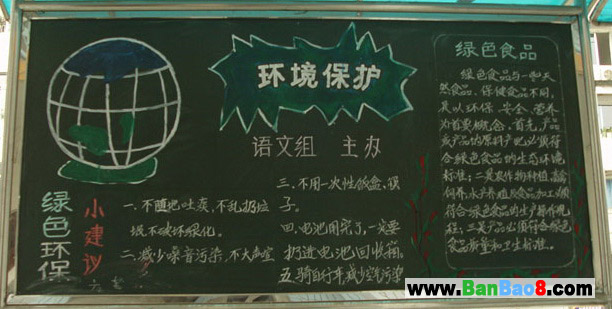 环境保护
语文组 主办
绿色环保
小建议
一、不随地吐痰、不乱扔垃
圾不破坏绿化。
二、减少噪音污染，不大声喧
三、不用一次性饭盒、筷
子。
四、电池用完了，一定要
扔进电池回收箱。
五、骑自行车，减少空气污染
绿色食品
绿色食品与一般天
然食品、保健食品不同，
其以环保、安全、营养
为首要概念。首先，产品
或产品的原料产地必须符
合绿色食品的生态环境
标准；二其农作物种植、畜禽
饲养、水产养殖及食品加工必须
符合绿色食品的生产操作规
程；三其产品必须符合绿色
食品质量和卫生标准。
www.BanBao8.com